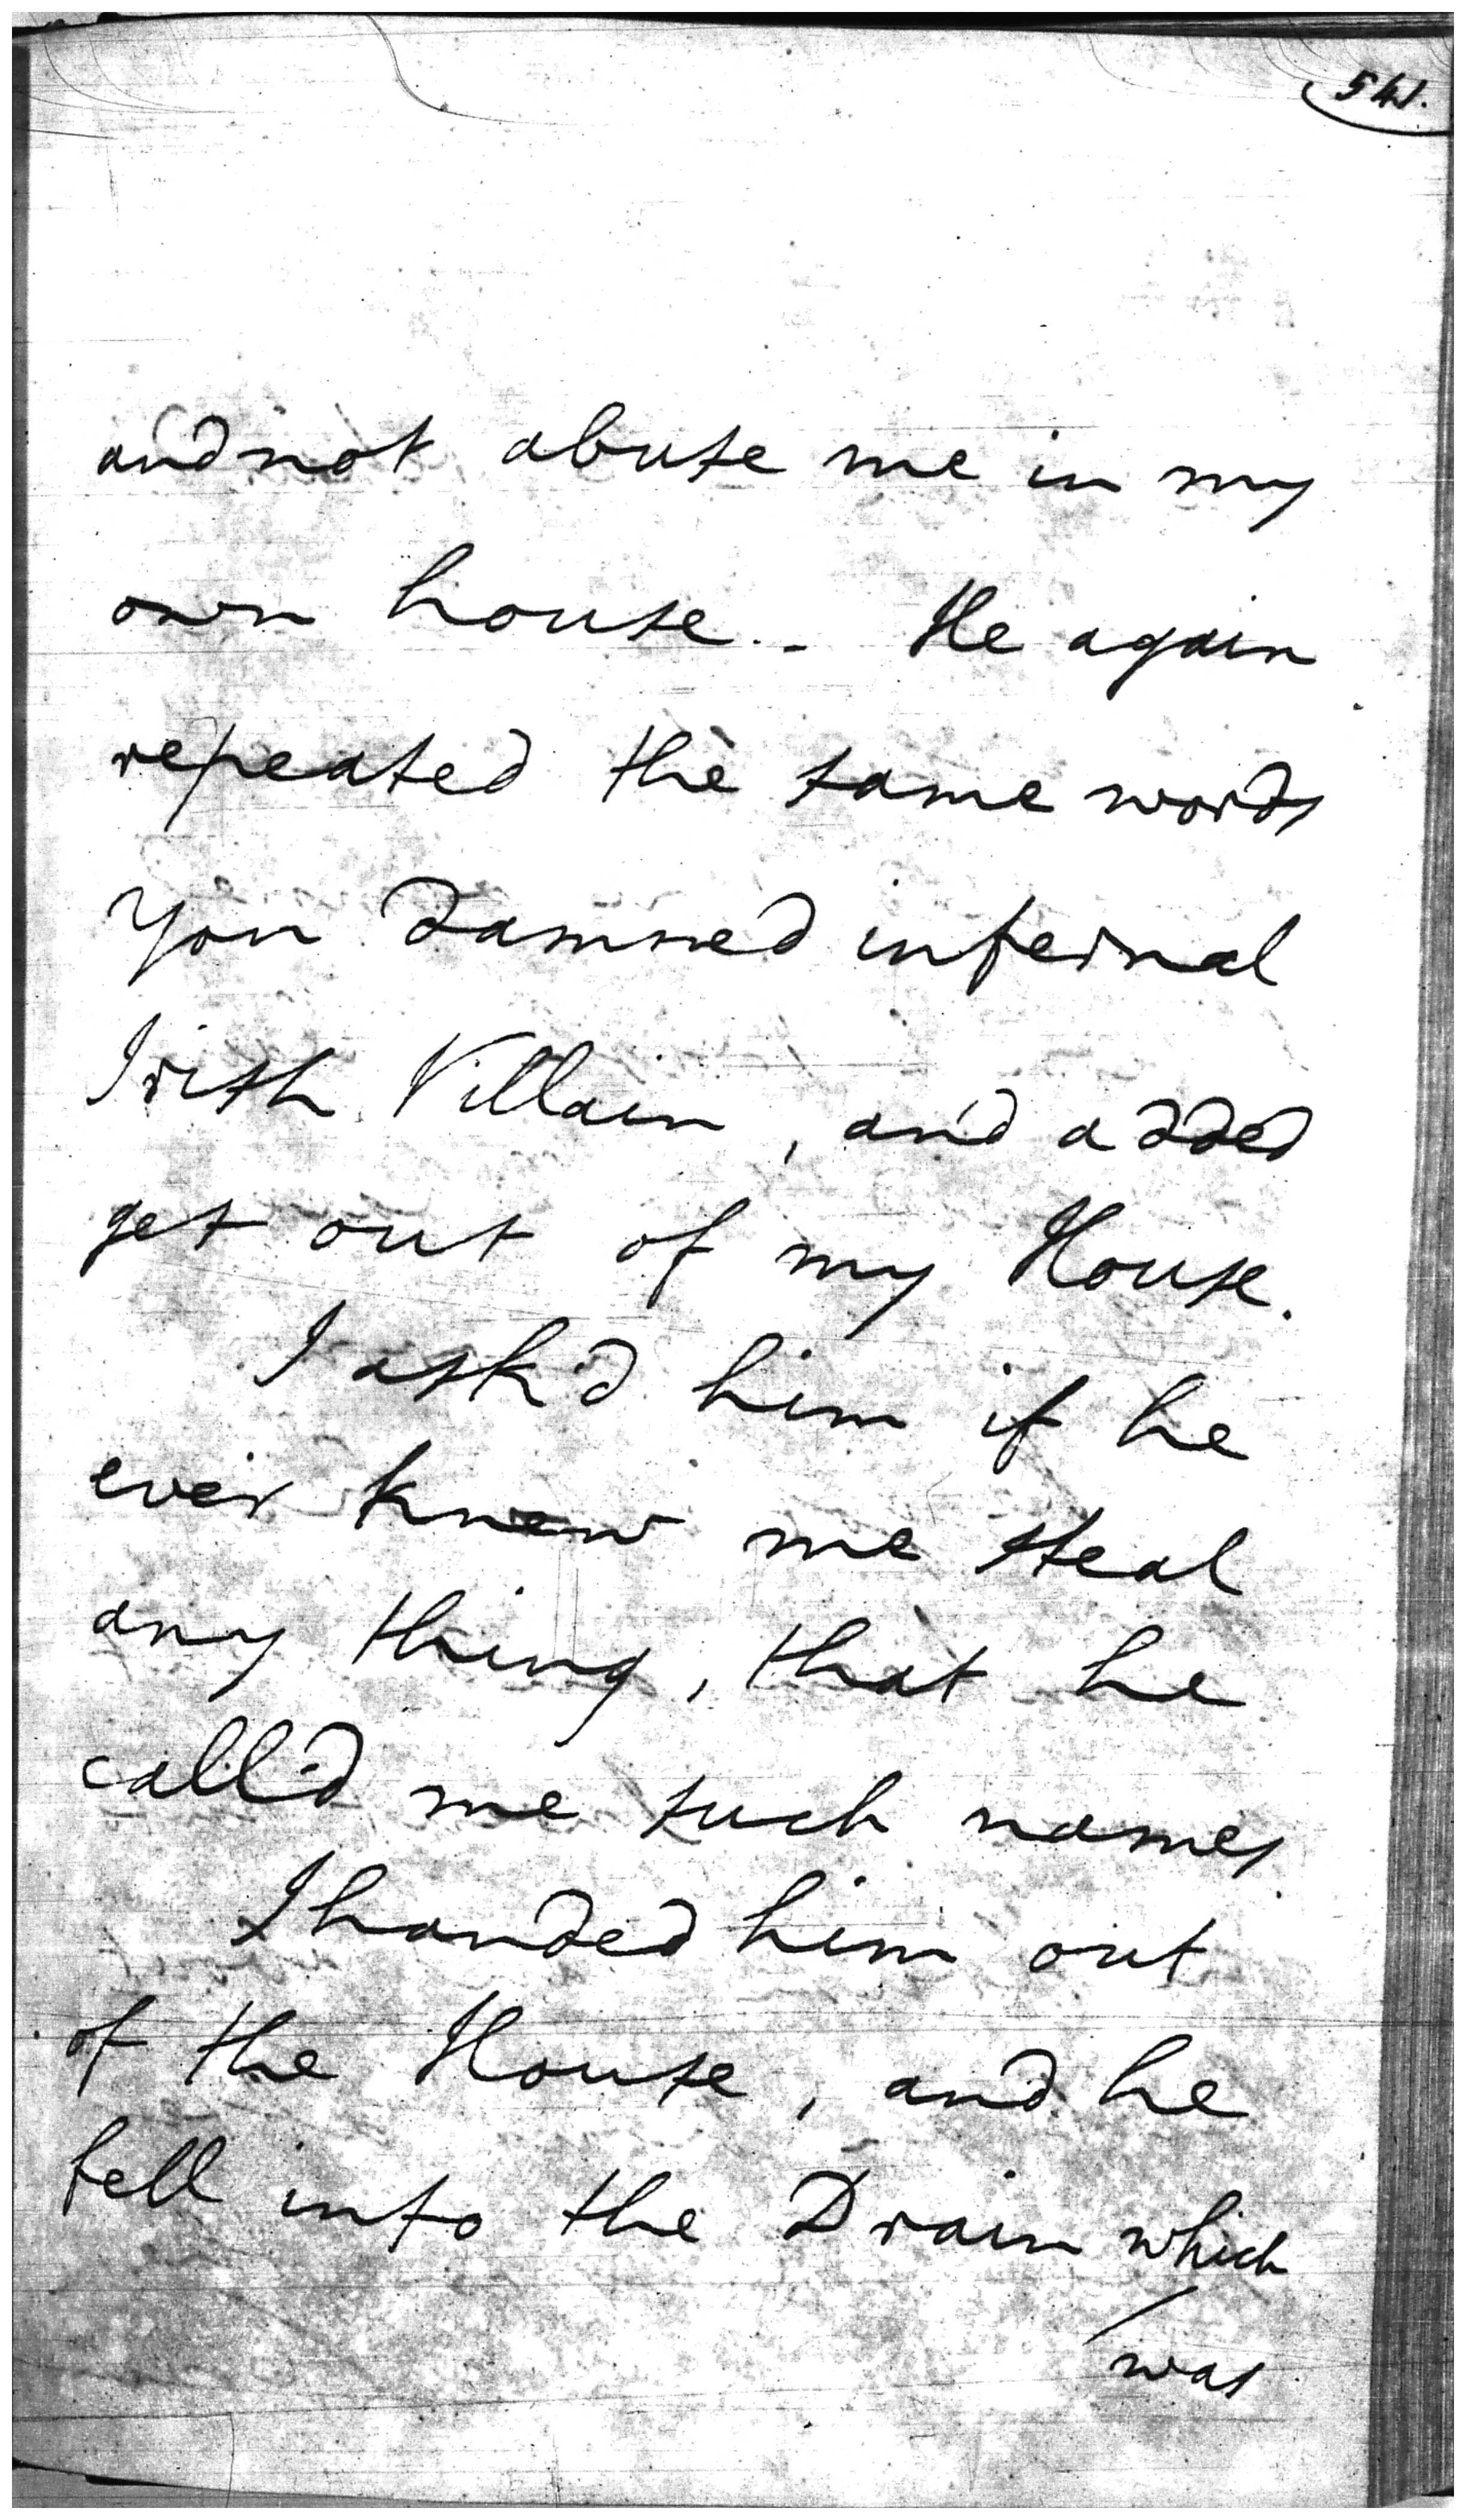 and not abuse me in my
own house.- He again
repeated the same words
You Damned infernal
Irish Villain, and added
get out of my House.
I ask'd him if he
ever knew me steal
any thing, that he
call'd me such names
I handed him out
of the House, and he
fell into the Drain which
was